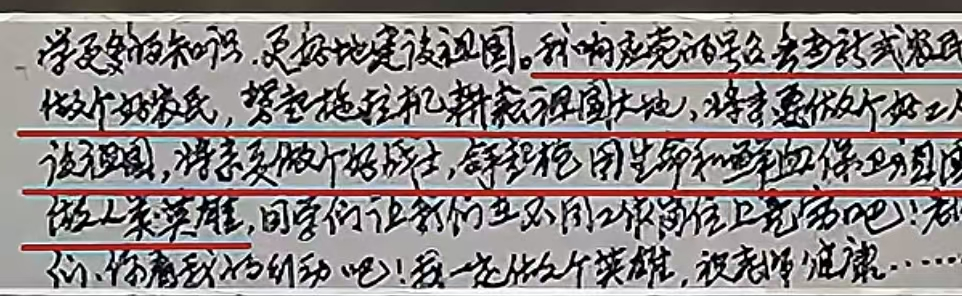 学更多的知识，更好地建设祖国。我响应党的号召去当新式农民
做个好农民，驾起拖拉机耕耘祖国大地，将来要做个好工人
设祖国，将来要做个好战士，拿起枪用生命和鲜血保卫祖国
做人类英雄，同学们让我们在不同工作岗位上竞赛吧！老
们、你看我的行动吧！我一定做个英雄，祝老师健康……